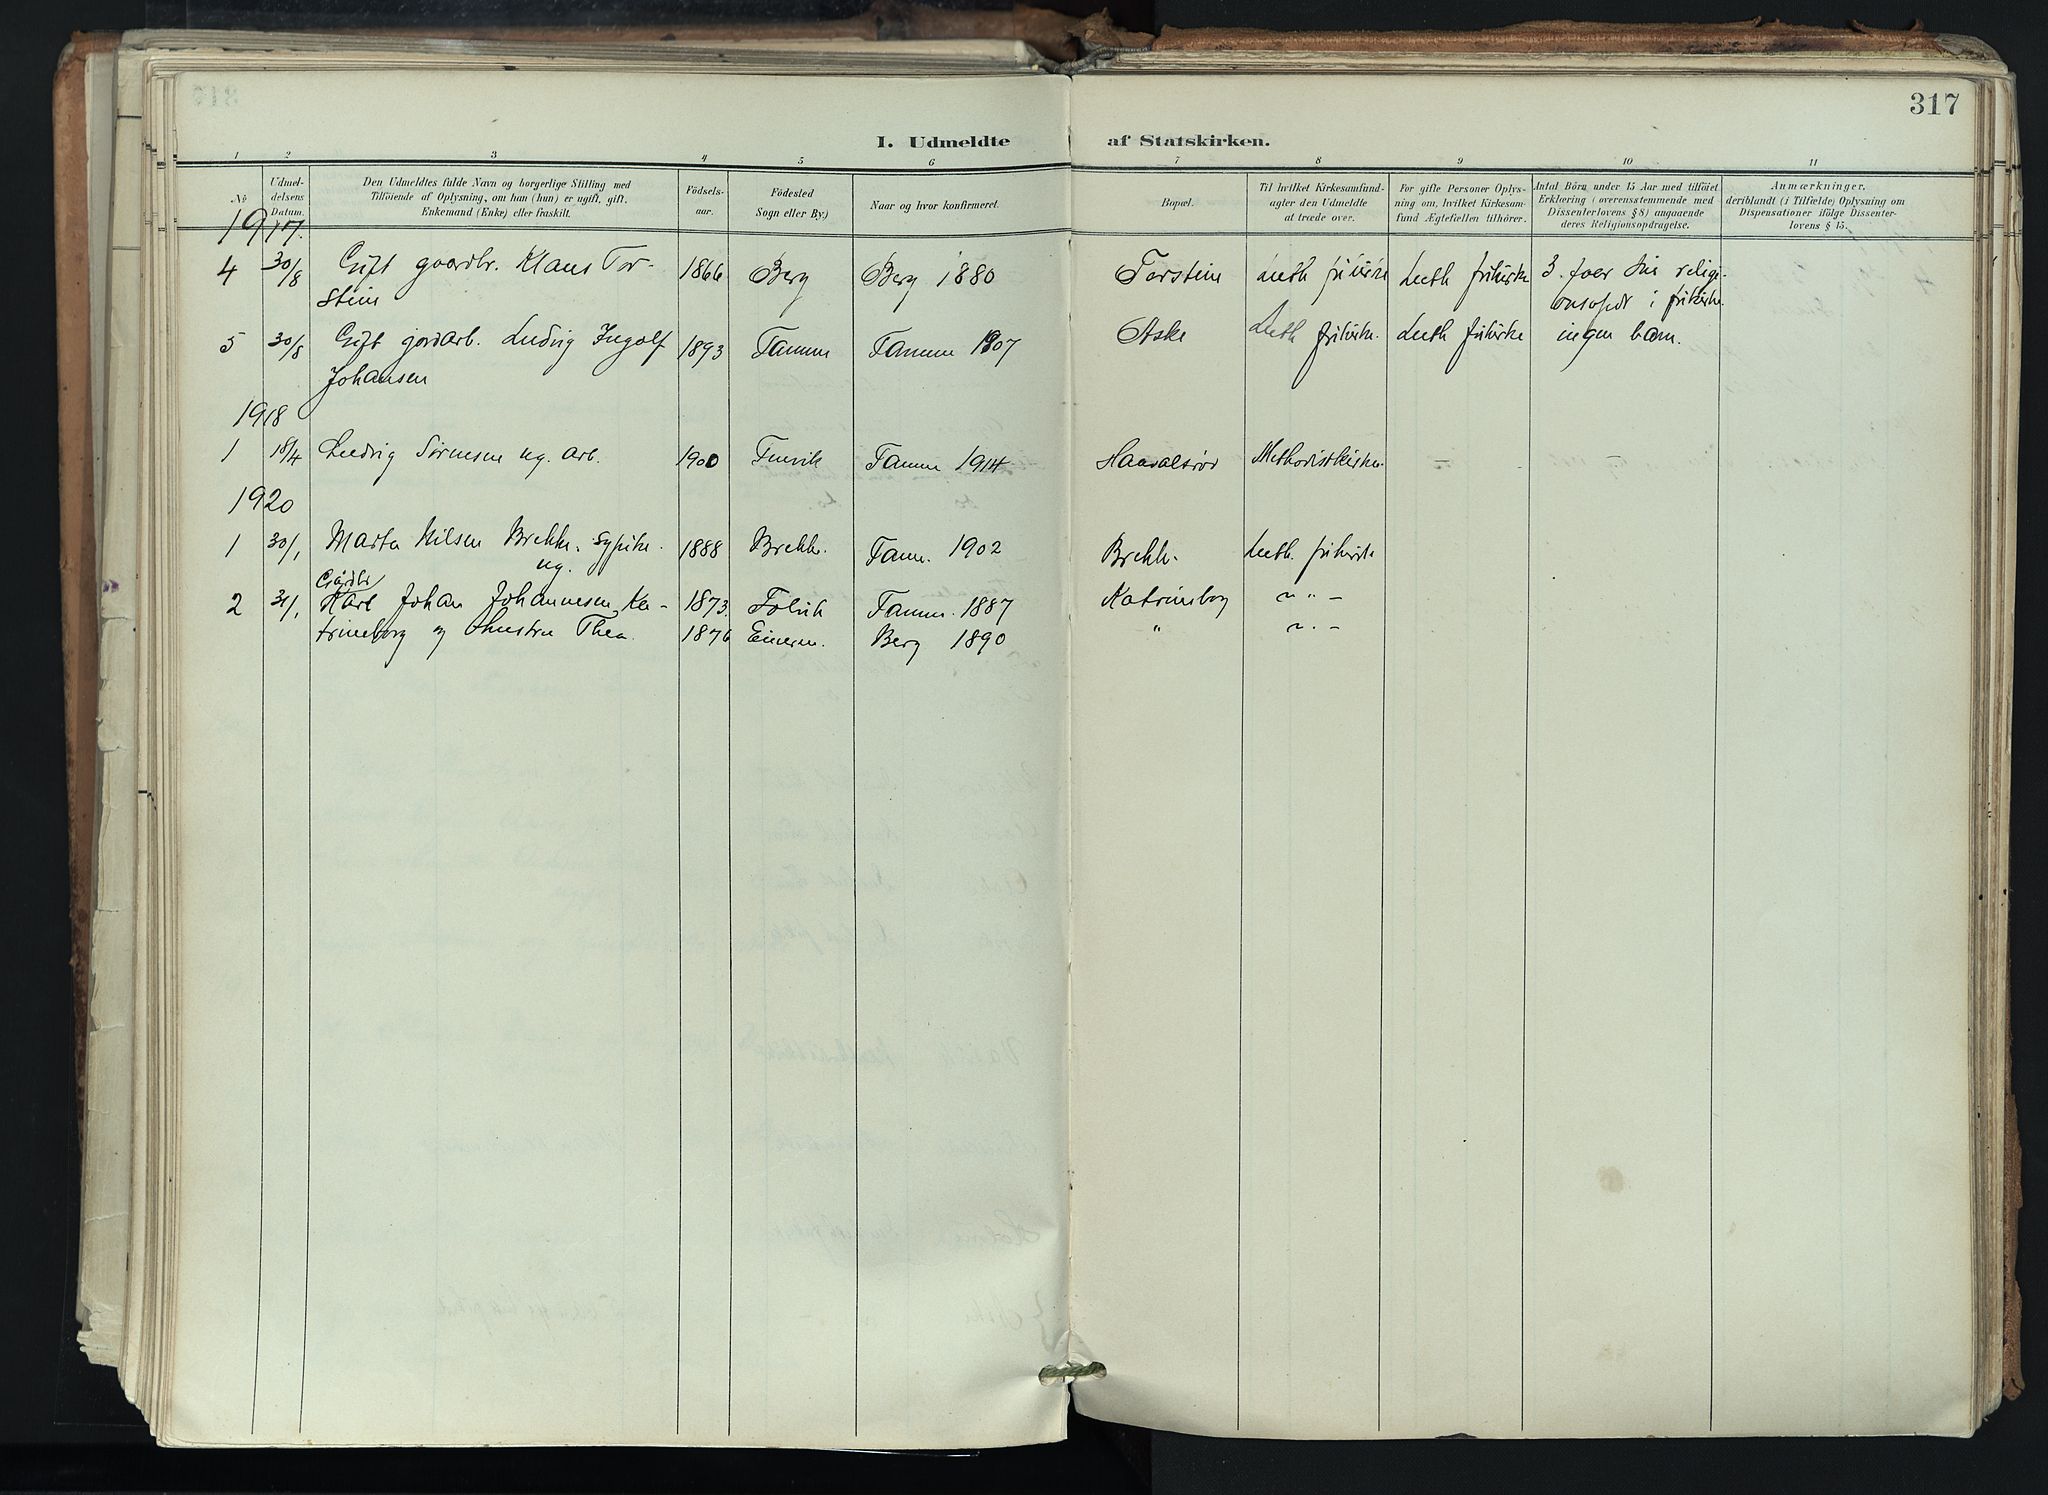 317
I. Udmeldte af Statskirken.
1 2 3 4 5 6 7 8 9 10 11
No
Udmel-
delsens
Datum.
Den Udmeldtes fulde Navn og borgerlige Stilling med
Tilföiende af Oplysning, om han (hun) er ugift, gift,
Enkemand (Enke) eller fraskilt.
Födsels-
aar.
Födested
Sogn eller By)
Naar og hvor konfirmeret.
Bopæl.
Til hvilket Kirkesamfund-
agter den Udmeldte
at træde over.
For gifte Personer Oplys-
ning om, hvilket Kirkesam-
fund Ægtefællen tilhörer.
Antal Börn under 15 Aar med tilföiet
Erklæring (overensstemmende med
Dissenterlovens § 8) angaaende
deres Religionsopdragelse.
Anmærkninger,
deriblandt (i Tilfælde) Oplysning om
Dispensationer ifölge Dissenter-
lovens § 15.
1917.
4 30/8 Gift gaardbr. Klaus Tor- 1866 Berg Berg 1880 Torstein Luth frikirke Luth frikirke 3. faar sin religi-
stein onsopdr i frikirke.
5 30/8 Gift jordarb. Ludvig Ingolf 1893 Tamme Tamme 1907 Aske Luth frikirke. Luth frikirke ingen barn.
Johansen
1918
1 18/4 Ludvig Sörensen ug. arb. 1900 Furvik Tamme 1914 Haavalsröd Methodistkirke. — —
1920
1 30/1 Marta Nilsen Brekke, sypike. 1888 Brekke. Tamm. 1902 Brekke. Luth. frikirke
ug.
Gårdbr
2 31/1 Karl Johan Johannesen, Ka- 1873. Folvik Tamm. 1887 Katrineborg " -
trineborg og Hustru Thea 1876 Berg 1890 " " -